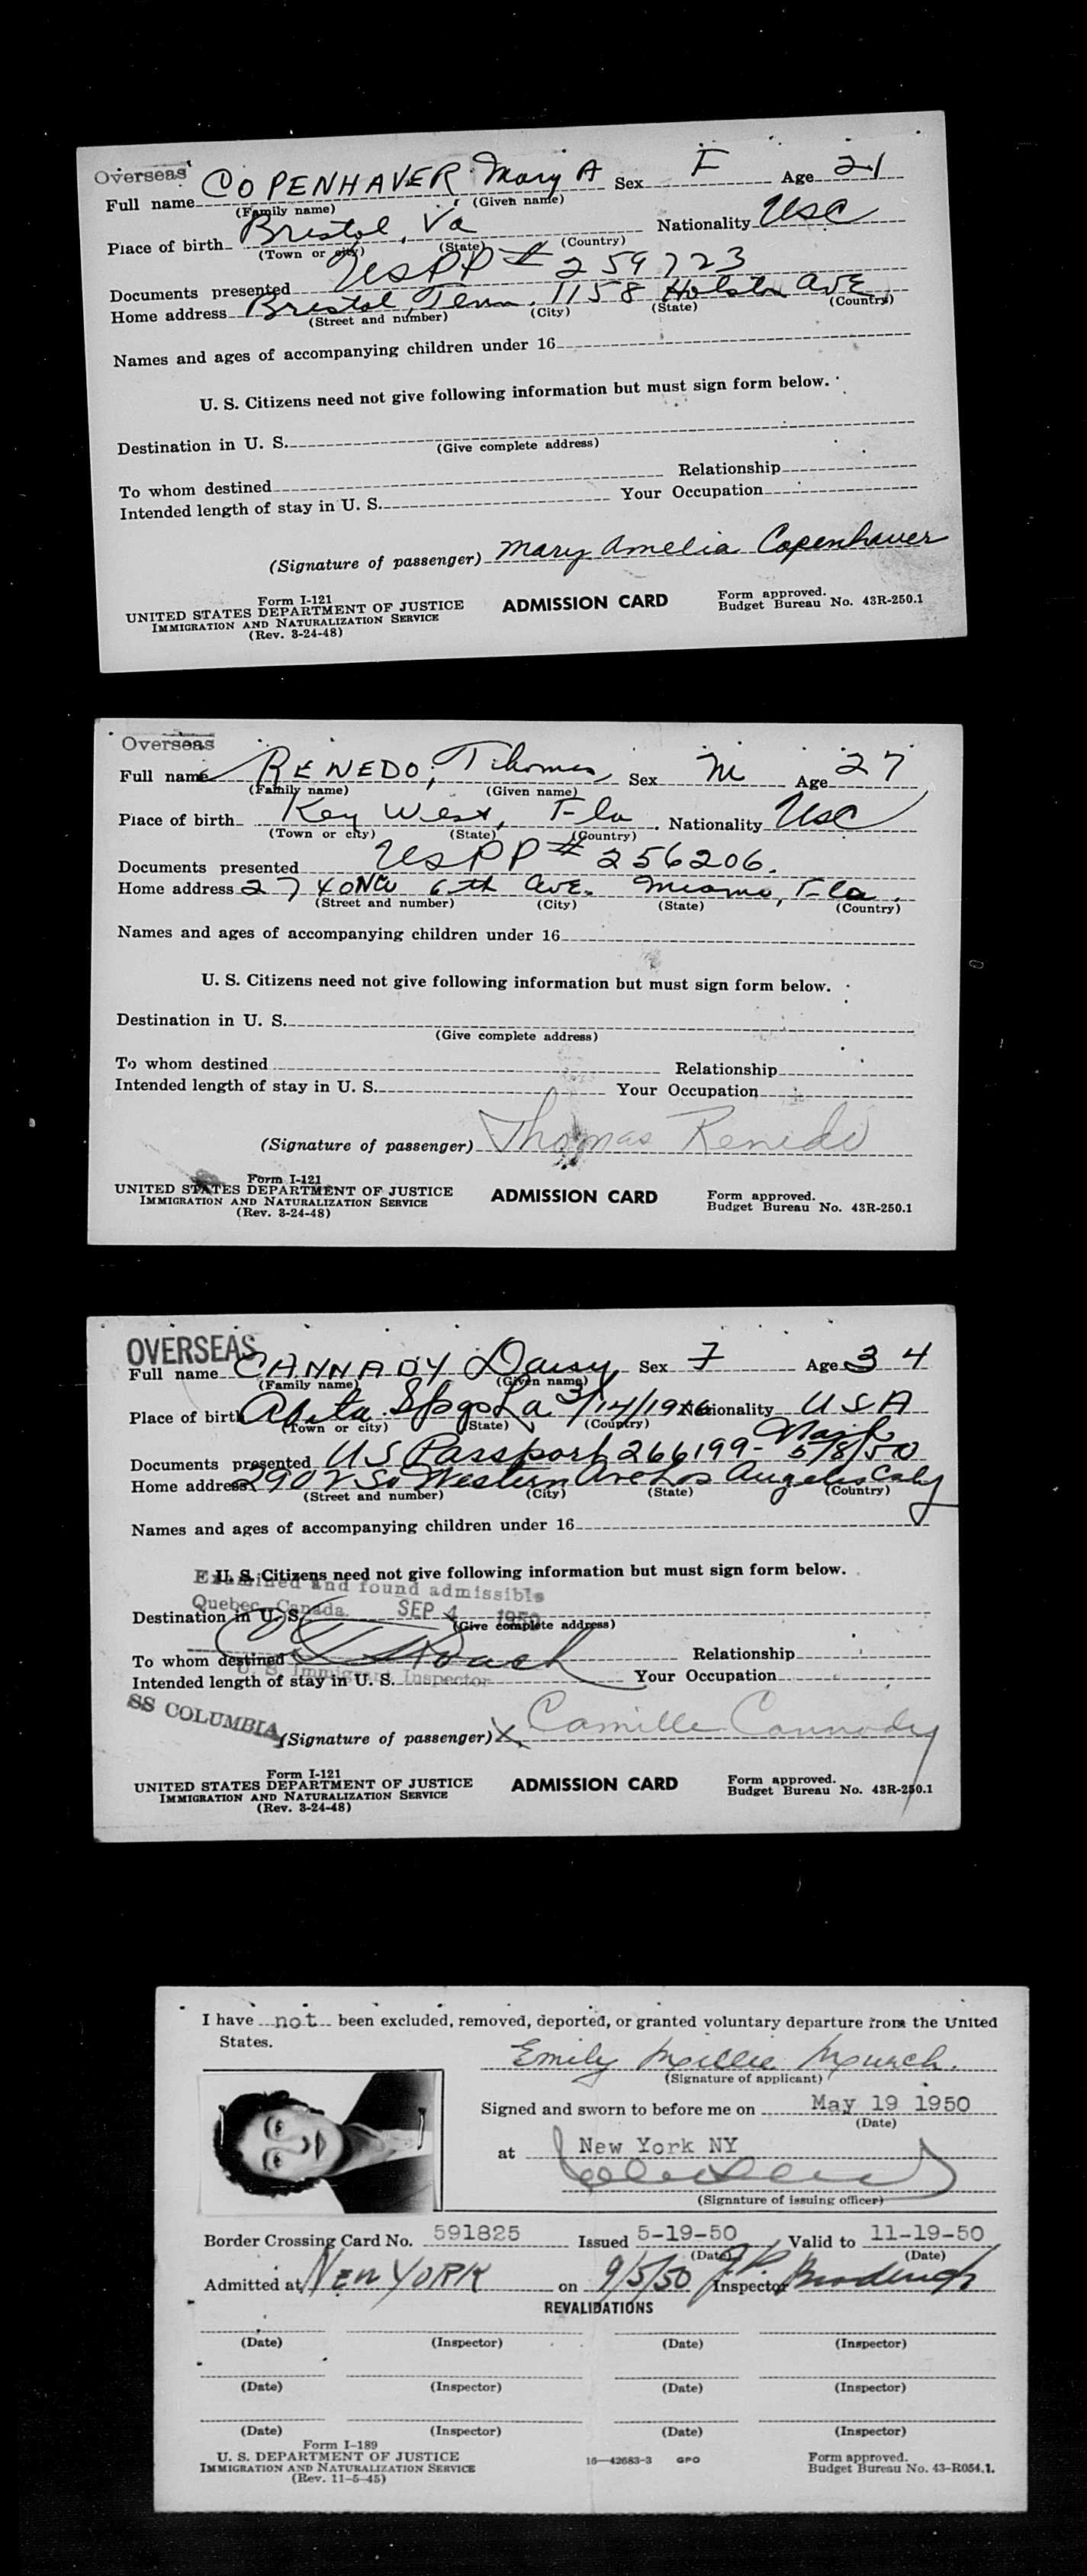 Overseas
Full name COPENHAVER Mary A Sex F Age 21
(Family name) (Given name)
Place of birth Bristol, Va Nationality USC
(Town or city) (State) (Country)
Documents presented USPP # 259723
Home address Bristol, Tenn. 1158 Holston AvE
(Street and number) (City) (State) (Country)
Names and ages of accompanying children under 16
U. S. Citizens need not give following information but must sign form below.
Destination in U. S.
(Give complete address)
To whom destined Relationship
Intended length of stay in U. S. Your Occupation
(Signature of passenger) Mary Amelia Copenhaver
Form I-121
UNITED STATES DEPARTMENT OF JUSTICE
IMMIGRATION AND NATURALIZATION SERVICE
(Rev. 3-24-48)
ADMISSION CARD
Form approved.
Budget Bureau No. 43R-250.1
Overseas
Full name RENEDO, Thomas Sex M Age 27
(Family name) (Given name)
Place of birth Key West, Fla Nationality USC
(Town or city) (State) (Country)
Documents presented USPP # 256206.
Home address 2740 NW 6th Ave. Miami, Fla.
(Street and number) (City) (State) (Country)
Names and ages of accompanying children under 16
U. S. Citizens need not give following information but must sign form below.
Destination in U. S.
(Give complete address)
To whom destined Relationship
Intended length of stay in U. S. Your Occupation
(Signature of passenger) Thomas Renedo
Form I-121
UNITED STATES DEPARTMENT OF JUSTICE
IMMIGRATION AND NATURALIZATION SERVICE
(Rev. 3-24-48)
ADMISSION CARD
Form approved.
Budget Bureau No. 43R-250.1
OVERSEAS
Full name CANNADY Daisy Sex F Age 34
(Family name) (Given name)
Place of birth Abita Spgs La 3/14/1916 Nationality USA
(Town or city) (State) (Country)
Documents presented US Passport 266199- 5/8/50
Home address 2902 So Western Ave Los Angeles Calif
(Street and number) (City) (State) (Country)
Names and ages of accompanying children under 16
U. S. Citizens need not give following information but must sign form below.
Examined and found admissible
Quebec, Canada. SEP 4 1950
Destination in U. S.
(Give complete address)
To whom destined Roach Relationship
U. S. Immigrant Inspector
Intended length of stay in U. S. Your Occupation
SS COLUMBIA
(Signature of passenger) X Camille Cannady
Form I-121
UNITED STATES DEPARTMENT OF JUSTICE
IMMIGRATION AND NATURALIZATION SERVICE
(Rev. 3-24-48)
ADMISSION CARD
Form approved.
Budget Bureau No. 43R-250.1
I have not been excluded, removed, deported, or granted voluntary departure from the United
States.
Emily Millie
(Signature of applicant)
Signed and sworn to before me on May 19 1950
(Date)
at New York NY
(Signature of issuing officer)
Border Crossing Card No. 591825 Issued 5-19-50 Valid to 11-19-50
(Date) (Date)
Admitted at NEW YORK on 9/5/50 Inspector
REVALIDATIONS
(Date) (Inspector) (Date) (Inspector)
(Date) (Inspector) (Date) (Inspector)
(Date) (Inspector) (Date) (Inspector)
Form I-189
U. S. DEPARTMENT OF JUSTICE
IMMIGRATION AND NATURALIZATION SERVICE
(Rev. 11-5-45)
16—42683-3 GPO
Form approved.
Budget Bureau No. 43-R054.1.